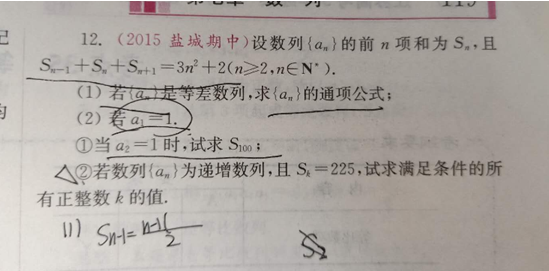 119
12. (2015 盐城期中)设数列{aₙ}的前 n 项和为 Sₙ,且
Sₙ₋₁+Sₙ+Sₙ₊₁=3n²+2(n≥2,n∈N*).
(1) 若{aₙ}是等差数列,求{aₙ}的通项公式;
(2) 若 a₁=1.
①当 a₂=1 时,试求 S₁₀₀;
△②若数列{aₙ}为递增数列,且 Sₖ=225,试求满足条件的所
有正整数 k 的值.
11) Sn-1=